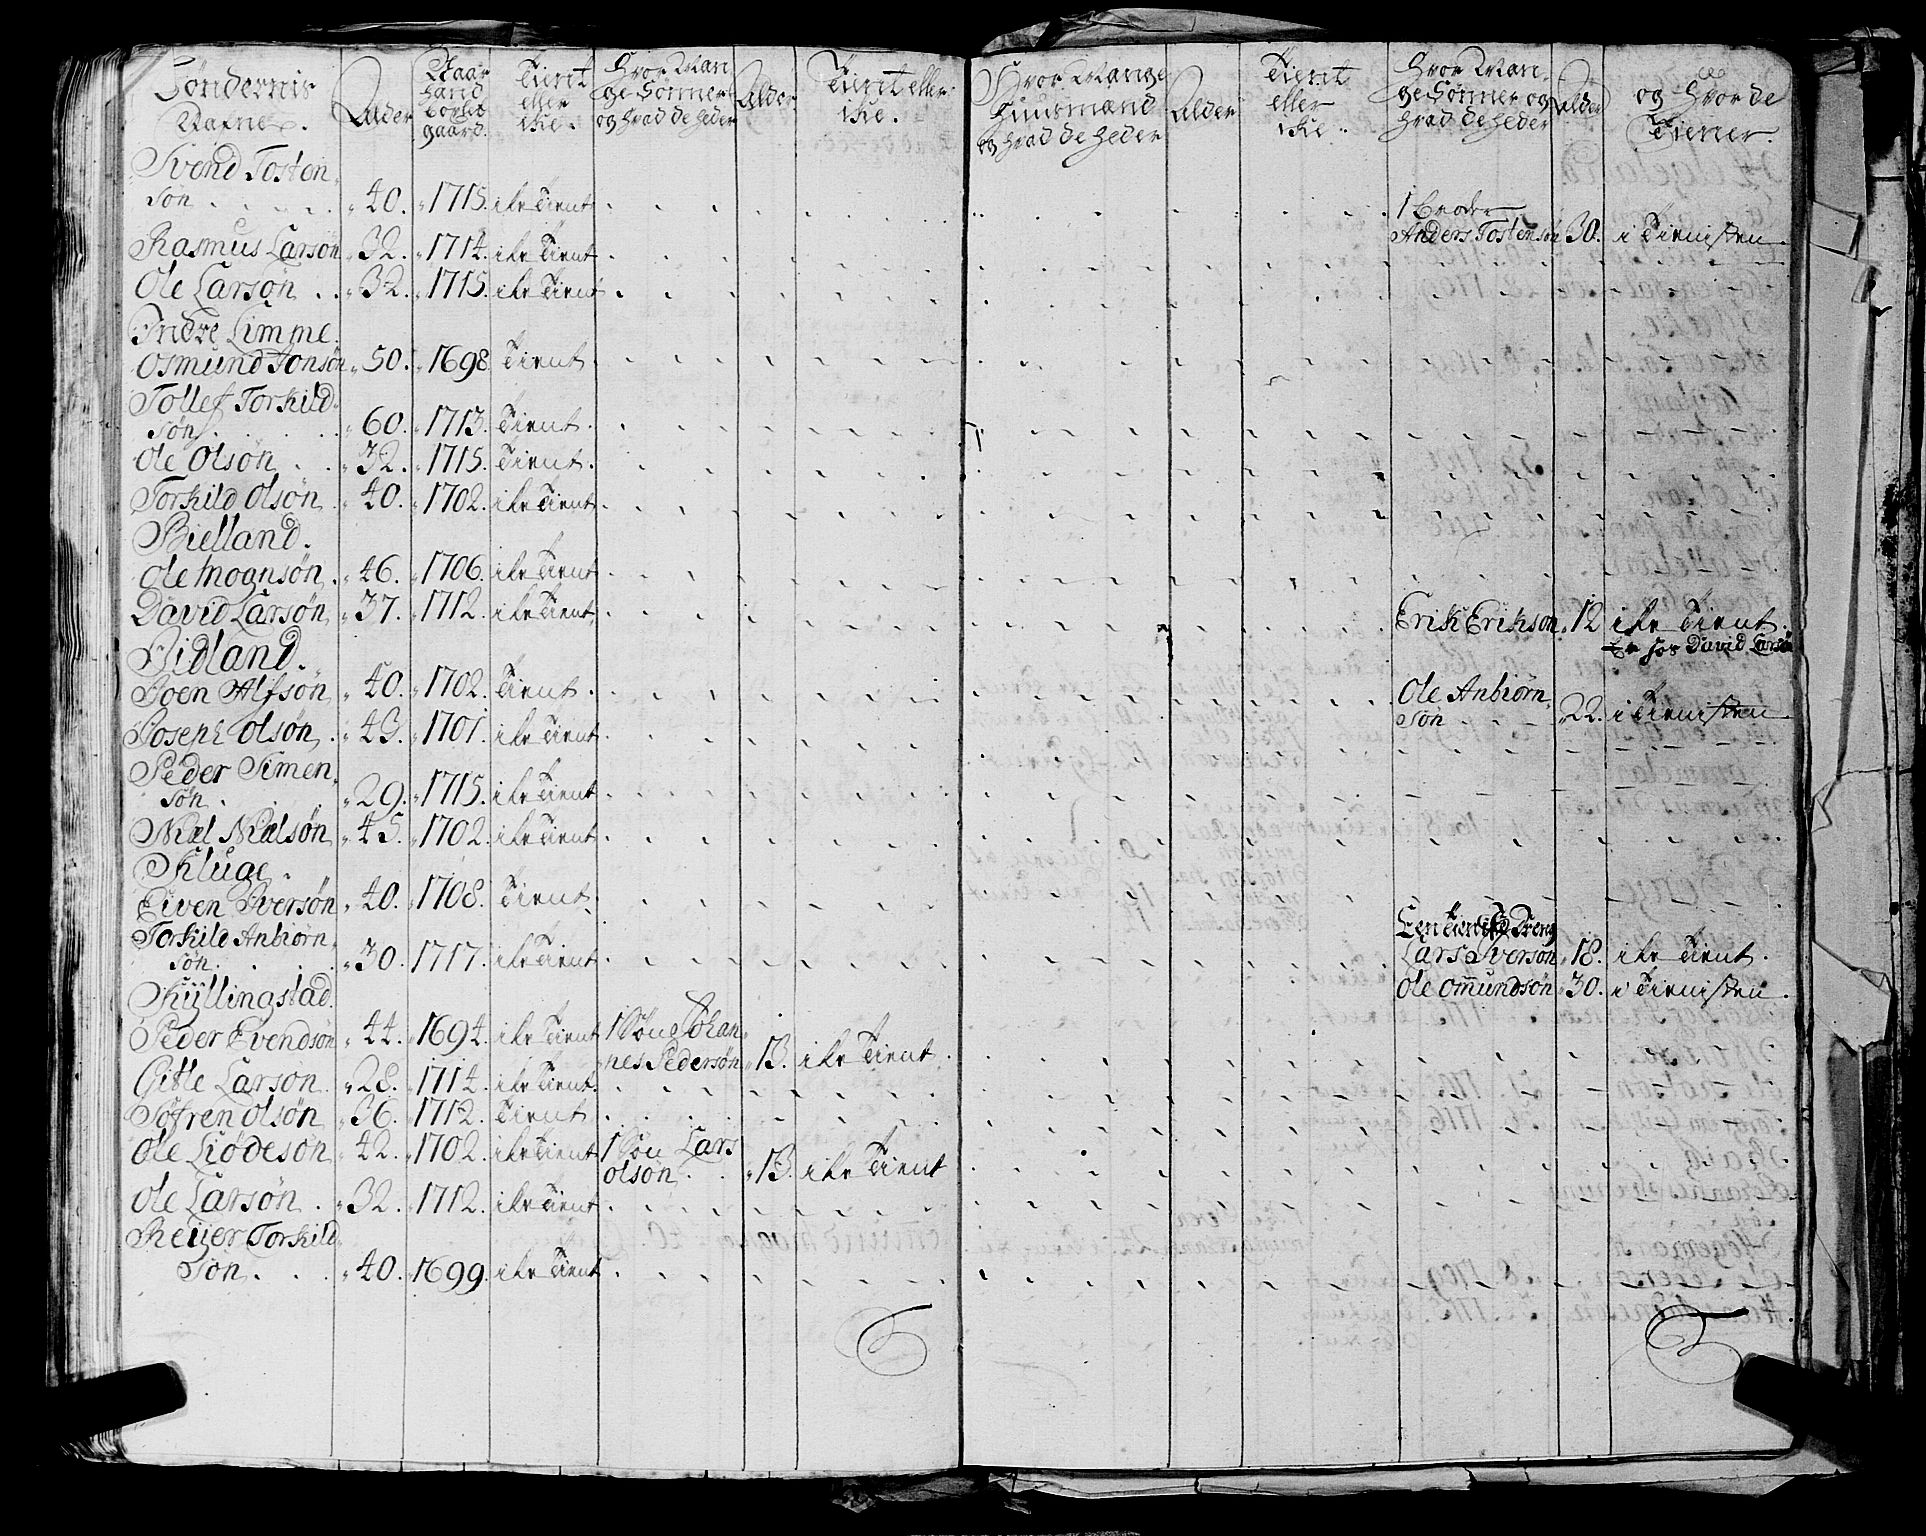 Bøndernis Nafne.
Alder
Naar hand boxlet gaard.
Tient eller ike.
Hvor Mange Sønner og hvad de heder
Alder
Tient eller ike.
Hvor Mange Huusmænd og hvad de heder
Alder
Tient eller ike.
Hvor Mange Sønner og hvad de heder
Alder
og hvor de Tiener.
Svend Tosten
søn . . . . 40. 1715. ike Tient
1 Broder
Anders Tostensøn 30. i Tienisten
Rasmus Larsøn 32. 1714. ike Tient
Ole Larsøn . . 32. 1715. ike Tient
Indre Limme.
Osmund Jonsøn 50. 1698 Tient
Tollef Torkild
søn . . . 60. 1713. Tient.
Ole Olsøn . . 32. 1715. Tient.
Torkild Olsøn 40. 1702. ike Tient
Bielland.
Ole Mognsøn . 46. 1706. ike Tient
David Larsøn 37. 1712. ike Tient
Erik Erikson 12 ike Tient.
er hos David Larsøn
Aidland.
Joen Alfsøn 40. 1702. Tient
Ole Anbiørn
søn 22. i Tienisten
Joseph Olsøn . 43. 1701. ike Tient
Peder Simen
søn . 29. 1715. ike Tient
Niel Nielsøn 45. 1702. ike Tient
Kluge.
Eiven Iversøn 40. 1708. Tient
Een Tieniste Dreng
Torkild Anbiørn
søn . . . 30. 1717. ike Tient
Lars Iversøn 18. ike Tient.
Kyllingstad.
Ole Omundsøn 30. i Tienisten.
Peder Evendsøn 44. 1694. ike Tient 1 Søn Johan
nes Pedersøn 13. ike Tient
Gitle Larson. 28. 1714. ike Tient.
Søfren Olsøn 36. 1712. Tient
Ole Liødesøn 42. 1702. ike Tient 1 Søn Lars
olson . 13. ike Tient
Ole Larsøn . 32. 1712. ike Tient
Reijer Torkild
Søn . . . 40. 1699. ike Tient